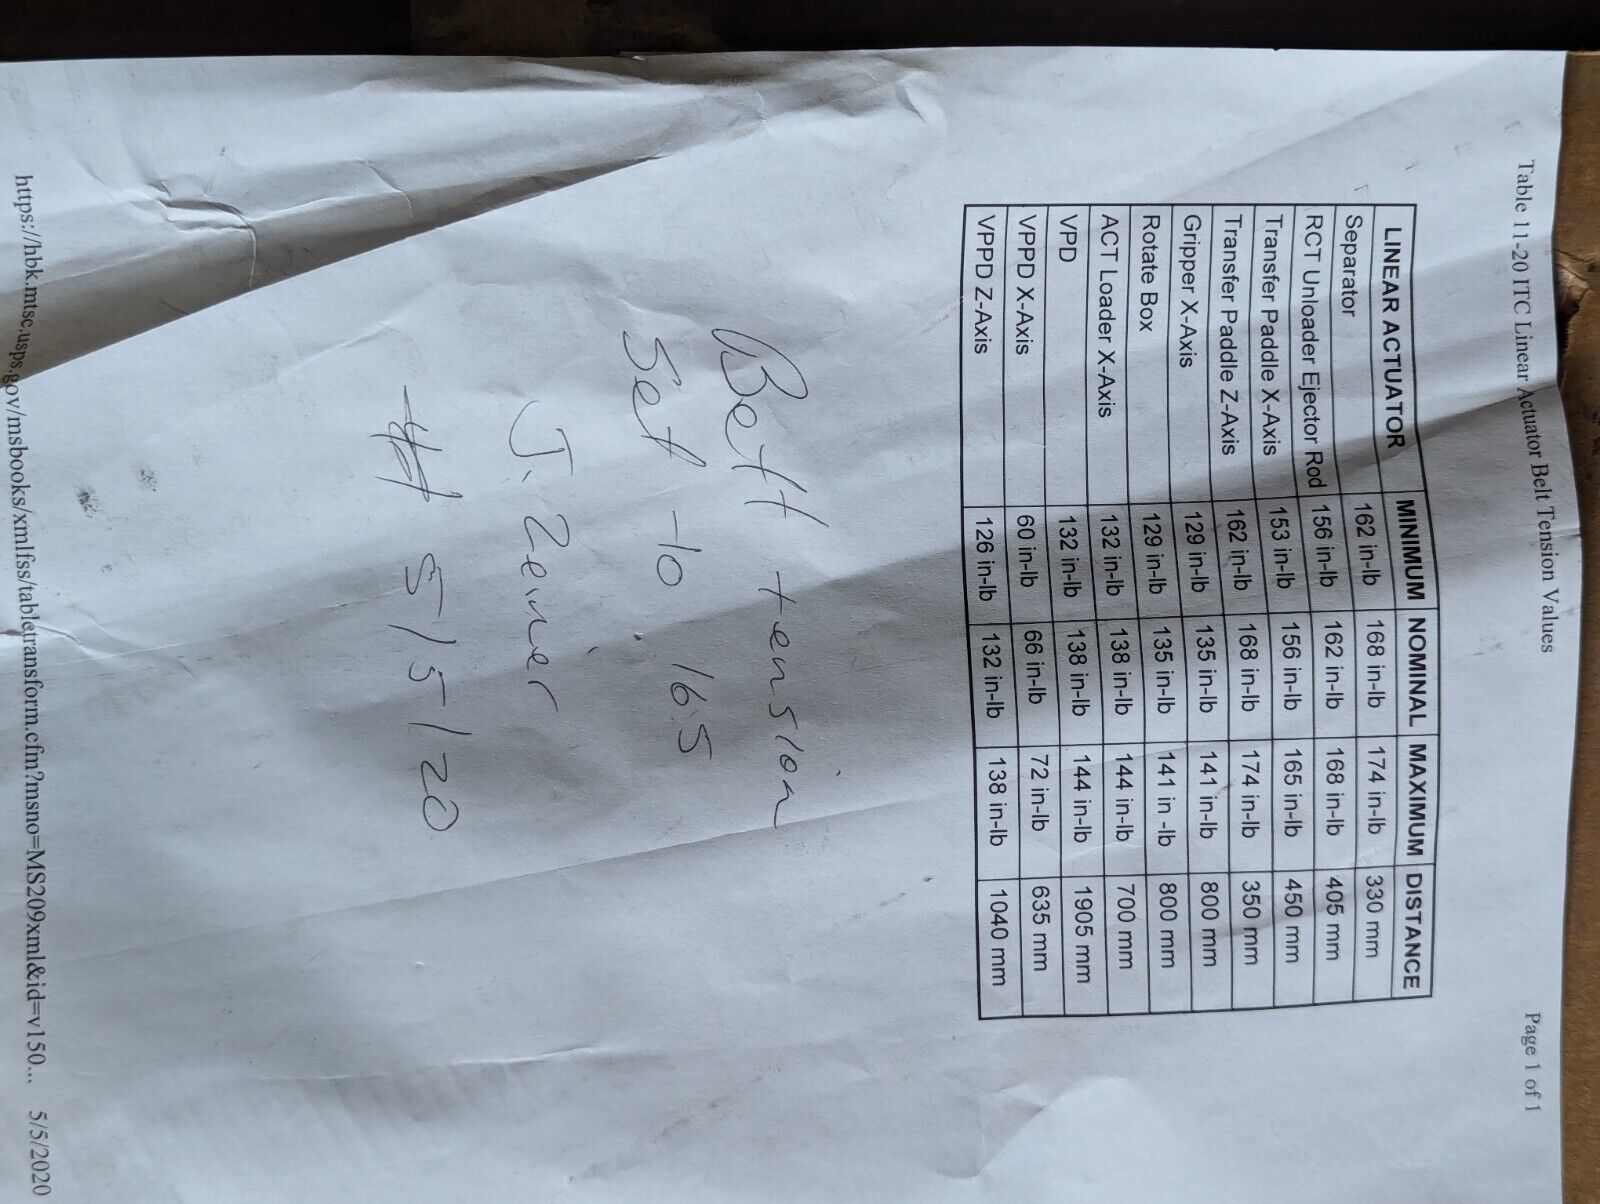 Table 11-20 ITC Linear Actuator Belt Tension Values Page 1 of 1
LINEAR ACTUATOR MINIMUM NOMINAL MAXIMUM DISTANCE
Separator 162 in-lb 168 in-lb 174 in-lb 330 mm
RCT Unloader Ejector Rod 156 in-lb 162 in-lb 168 in-lb 405 mm
Transfer Paddle X-Axis 153 in-lb 156 in-lb 165 in-lb 450 mm
Transfer Paddle Z-Axis 162 in-lb 168 in-lb 174 in-lb 350 mm
Gripper X-Axis 129 in-lb 135 in-lb 141 in-lb 800 mm
Rotate Box 129 in-lb 135 in-lb 141 in -lb 800 mm
ACT Loader X-Axis 132 in-lb 138 in-lb 144 in-lb 700 mm
VPD 132 in-lb 138 in-lb 144 in-lb 1905 mm
VPPD X-Axis 60 in-lb 66 in-lb 72 in-lb 635 mm
VPPD Z-Axis 126 in-lb 132 in-lb 138 in-lb 1040 mm
Belt tension
Set to 165
J. Zeiner
5/5/20
https://hbk.mtsc.usps.gov/msbooks/xmlfss/tabletransform.cfm?msno=MS209xml&id=v150... 5/5/2020